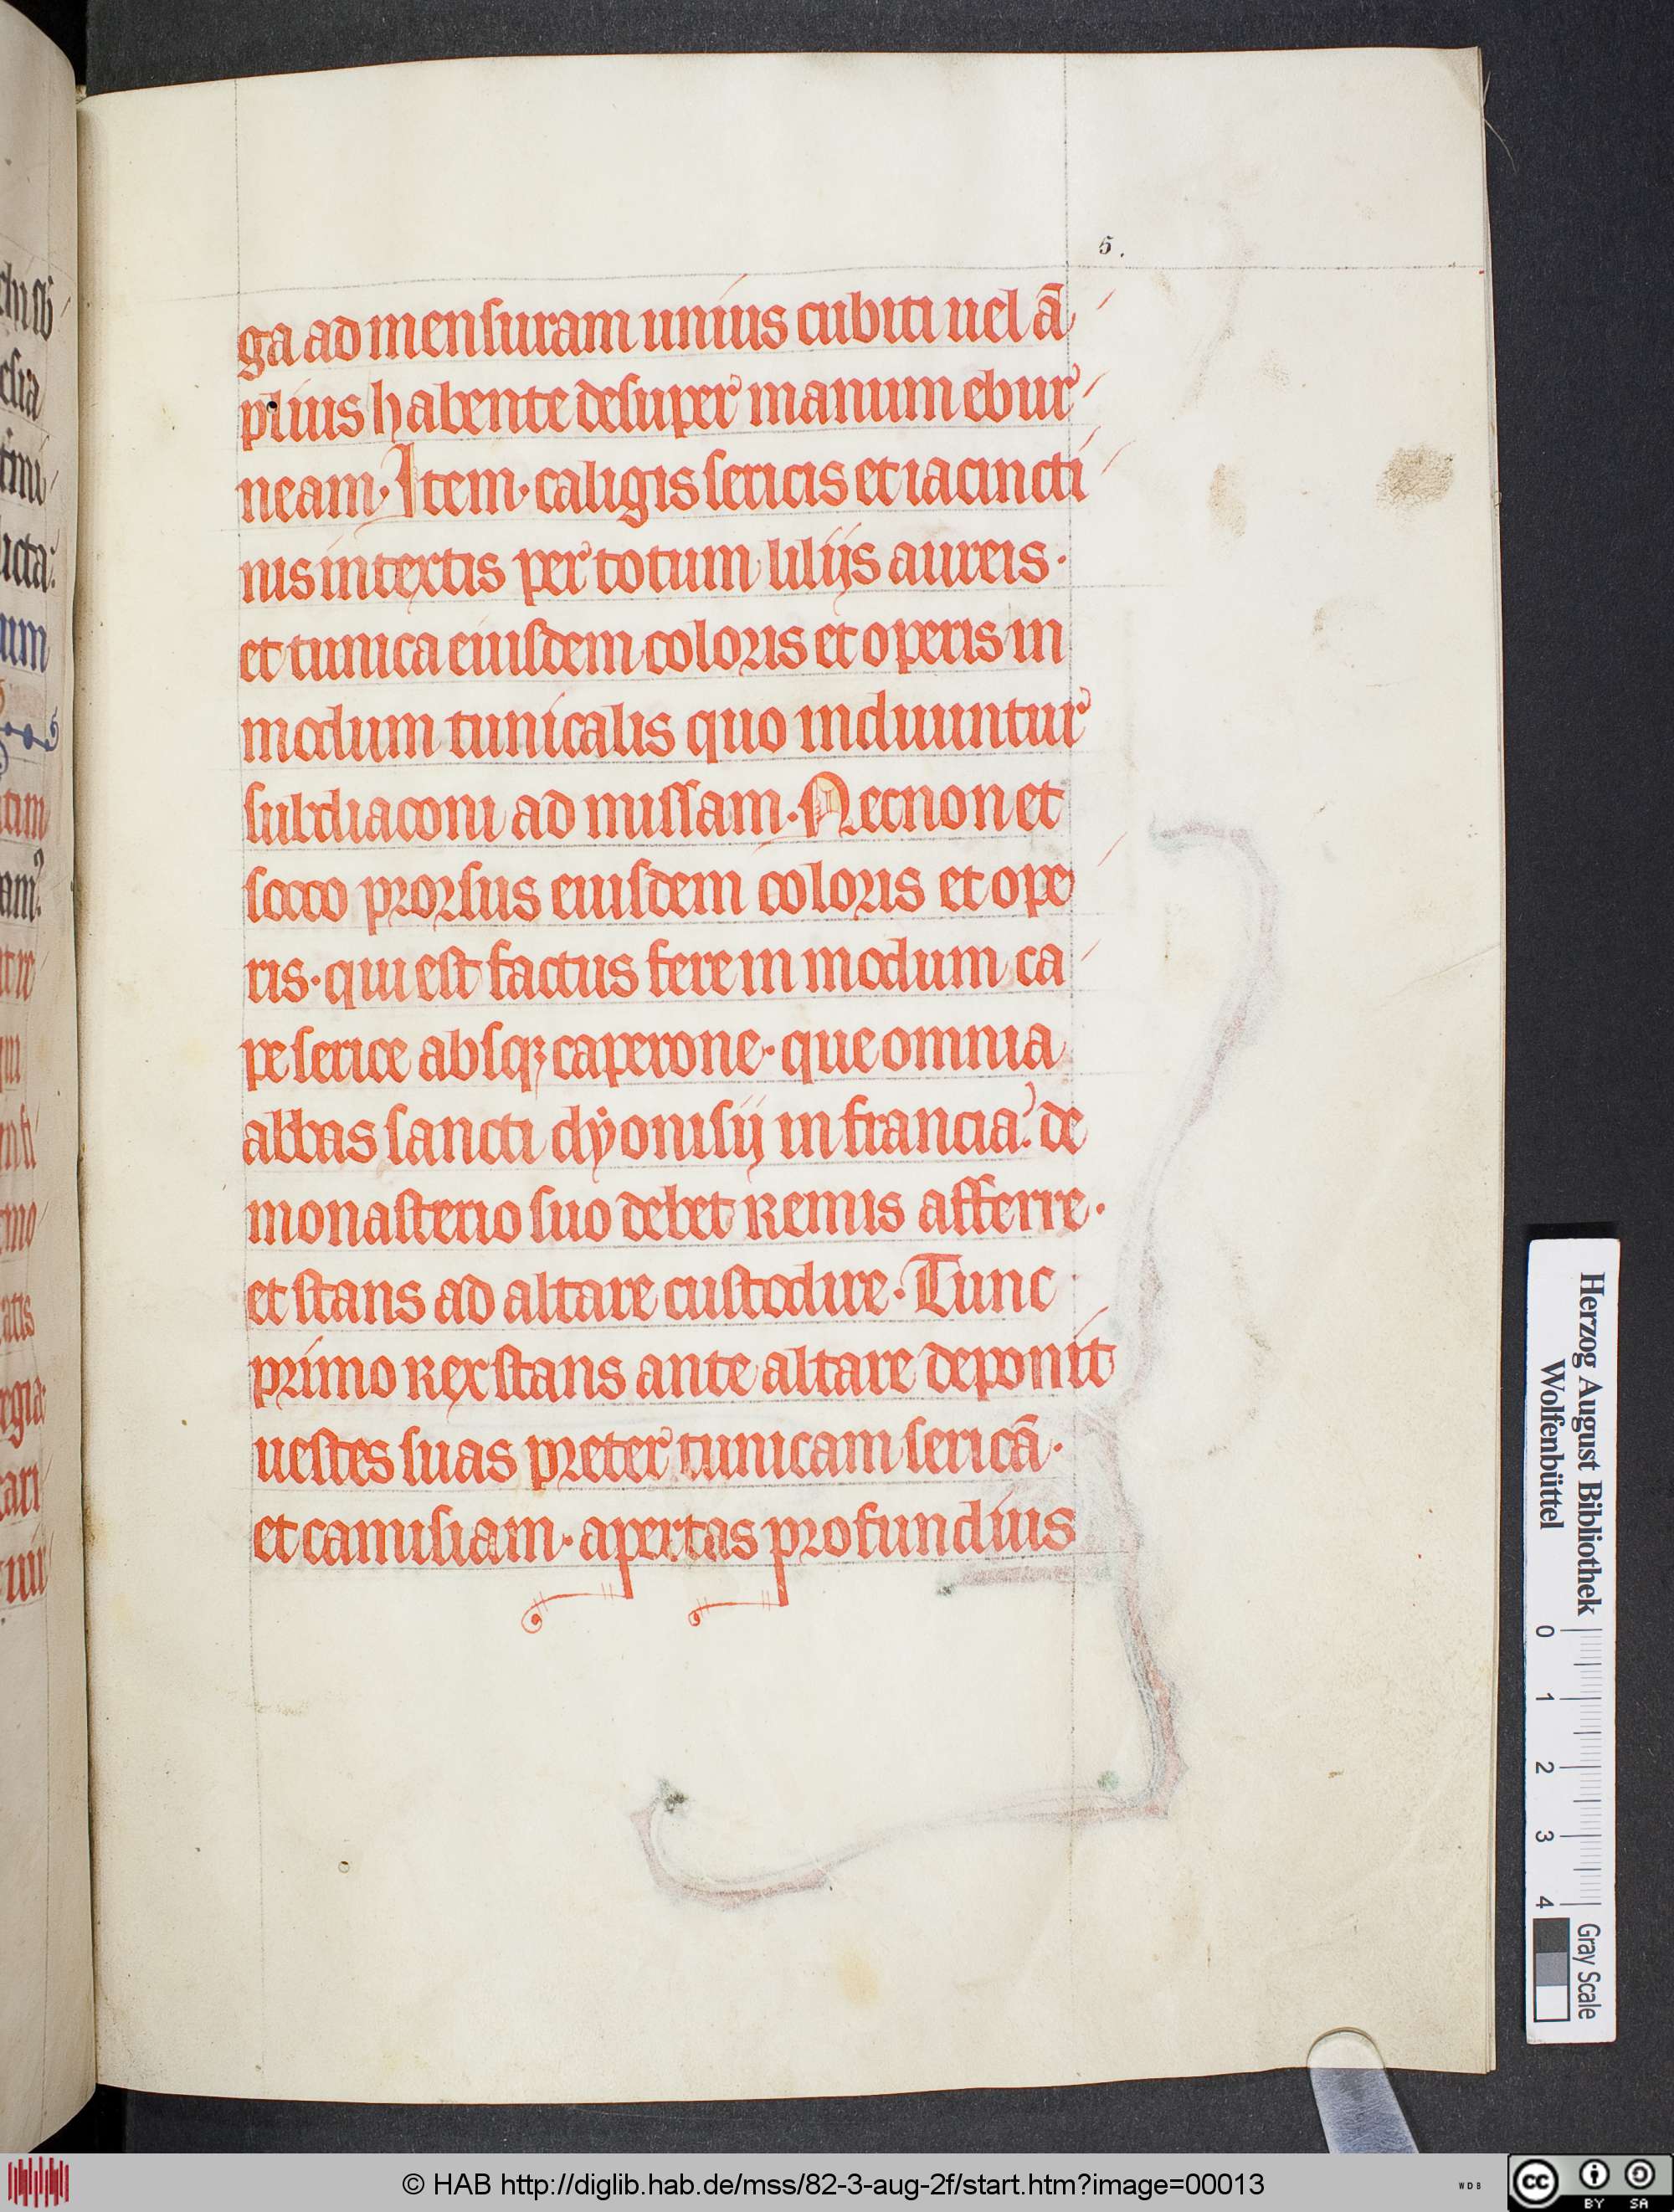 5.
ga ad mensuram unius cubiti uel ā
plius habente desuper manum ebur
neam. Item. caligis sericis et iacincti
nis intextis per totum lilijs aureis.
et tunica eiusdem coloris et operis in
modum tunicalis quo induuntur
subdiaconi ad missam. Necnon et
socco prorsus eiusdem coloris et ope
ris. qui est factus fere in modum ca
pe serice absqꝫ caperone. que omnia
abbas sancti dyonisij in francia. de
monasterio suo debet Remis afferre.
et stans ad altare custodire. Tunc
primo Rex stans ante altare deponit
uestes suas preter tunicam sericā.
et camisiam. apertas profundius
Herzog August Bibliothek
Wolfenbüttel
0 1 2 3 4
Gray Scale
© HAB http://diglib.hab.de/mss/82-3-aug-2f/start.htm?image=00013
WDB
cc BY SA